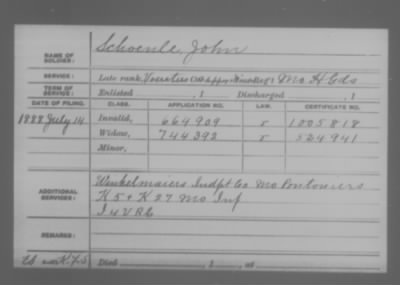 NAME OF SOLDIER: Schoenle, John
SERVICE: Late rank, Mo H Gds
TERM OF SERVICE: Enlisted , 1 Discharged , 1
DATE OF FILING. CLASS. APPLICATION NO. LAW. CERTIFICATE NO.
1888 July 14 Invalid, 664909 " 1005818
Widow, 744392 " 524941
Minor,
ADDITIONAL SERVICES: Winkelmaiers Indpt Co Mo Pontoniers
K 5 & K 27 Mo Inf
I 4 V R C
REMARKS:
Died , 1 , at